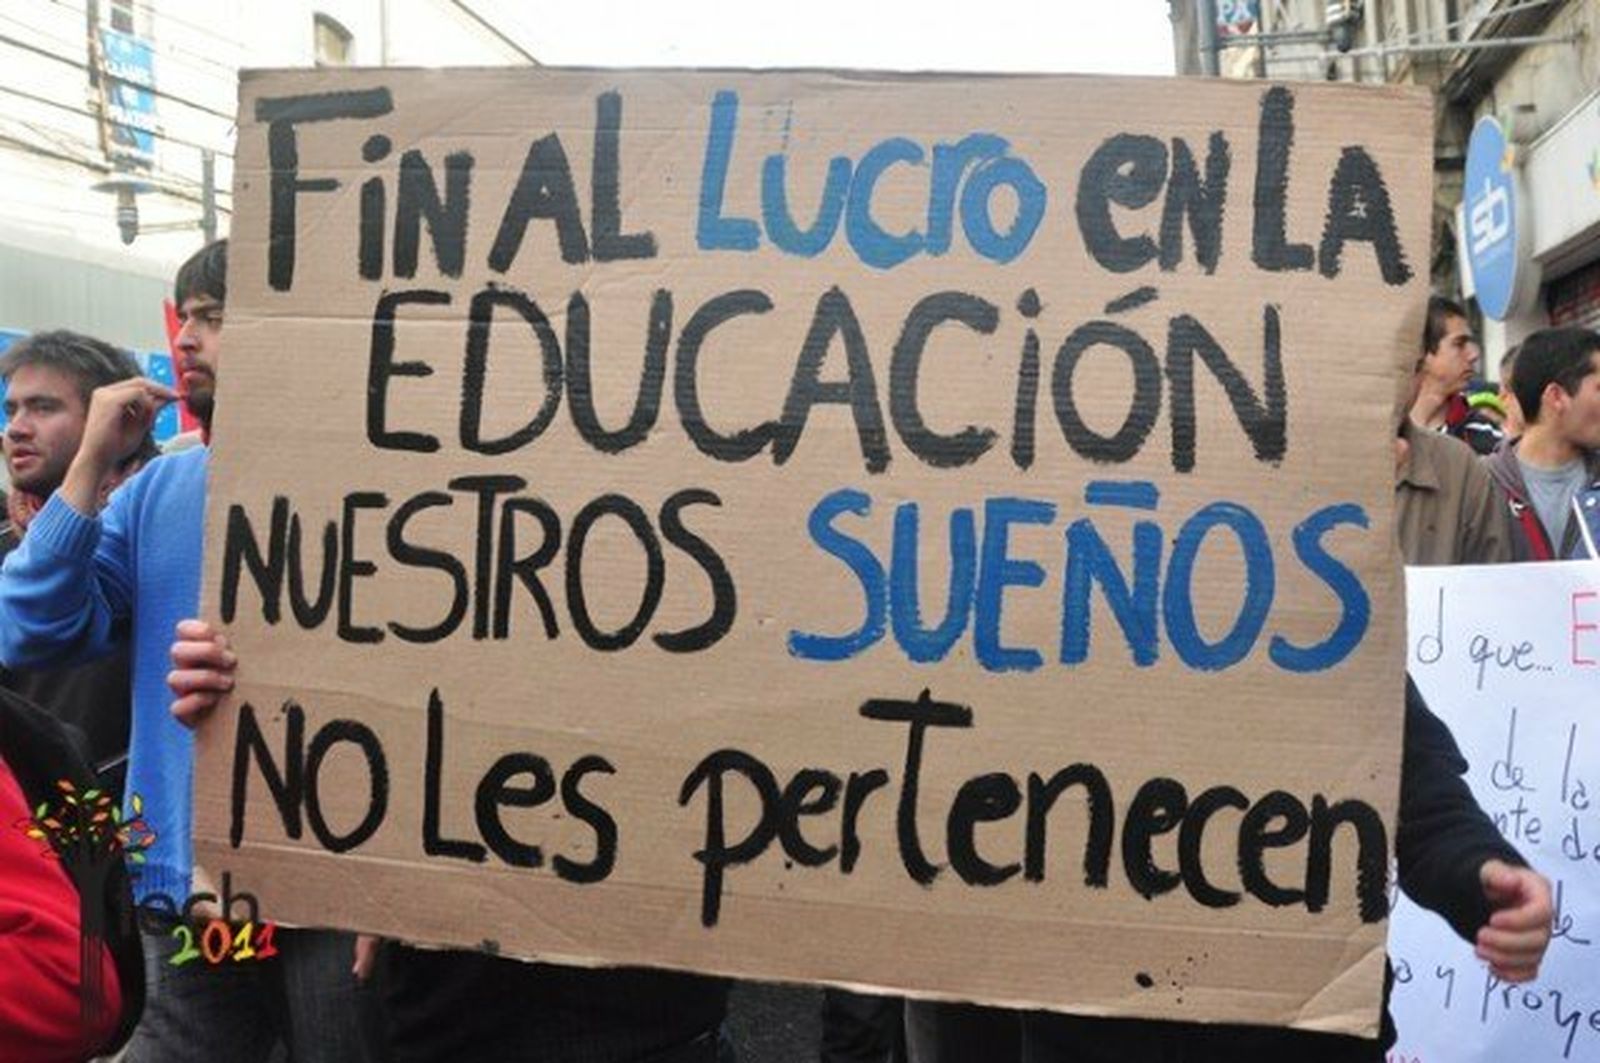 FiN AL LUCRO en LA
EDUCACiÓN
NUESTROS SUEÑOS
NO Les pertenecen
d que... E
de la
nte de
de
o y proye
fech
2011
sb
CLASES
PA